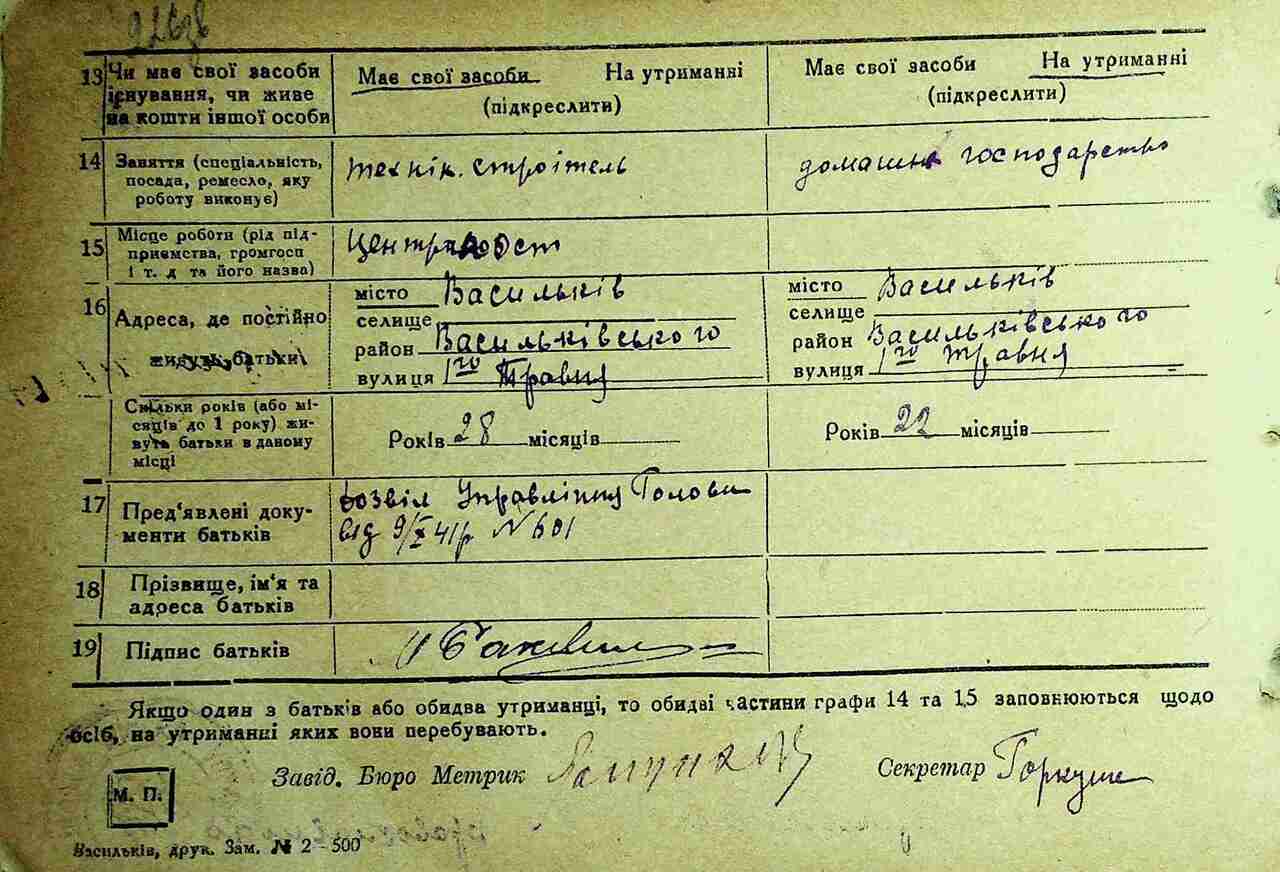 13 Чи має свої засоби існування, чи живе на кошти іншої особи
Має свої засоби На утриманні
(підкреслити)
Має свої засоби На утриманні
(підкреслити)
14 Заняття (спеціальність, посада, ремесло, яку роботу виконує)
технік. строітель
домашнє господарство
15 Місце роботи (рід підприємства, громгосп і т. д та його назва)
16 Адреса, де постійно живуть батьки
місто Васильків
селище
район Васильківського
вулиця 1го Травня
місто Васильків
селище
район Васильківського
вулиця 1го Травня
Скільки років (або місяців до 1 року) живуть батьки в даному місці
Років 28 місяців
Років 22 місяців
17 Пред'явлені документи батьків
дозвіл Управління Голови
від 9/X 41р N 601
18 Прізвище, ім'я та адреса батьків
19 Підпис батьків
Якщо один з батьків або обидва утриманці, то обидві частини графи 14 та 15 заповнюються щодо
осіб, на утриманні яких вони перебувають.
Завід. Бюро Метрик
Секретар Горкуше
М. П.
Васильків, друк. Зам. № 2-500